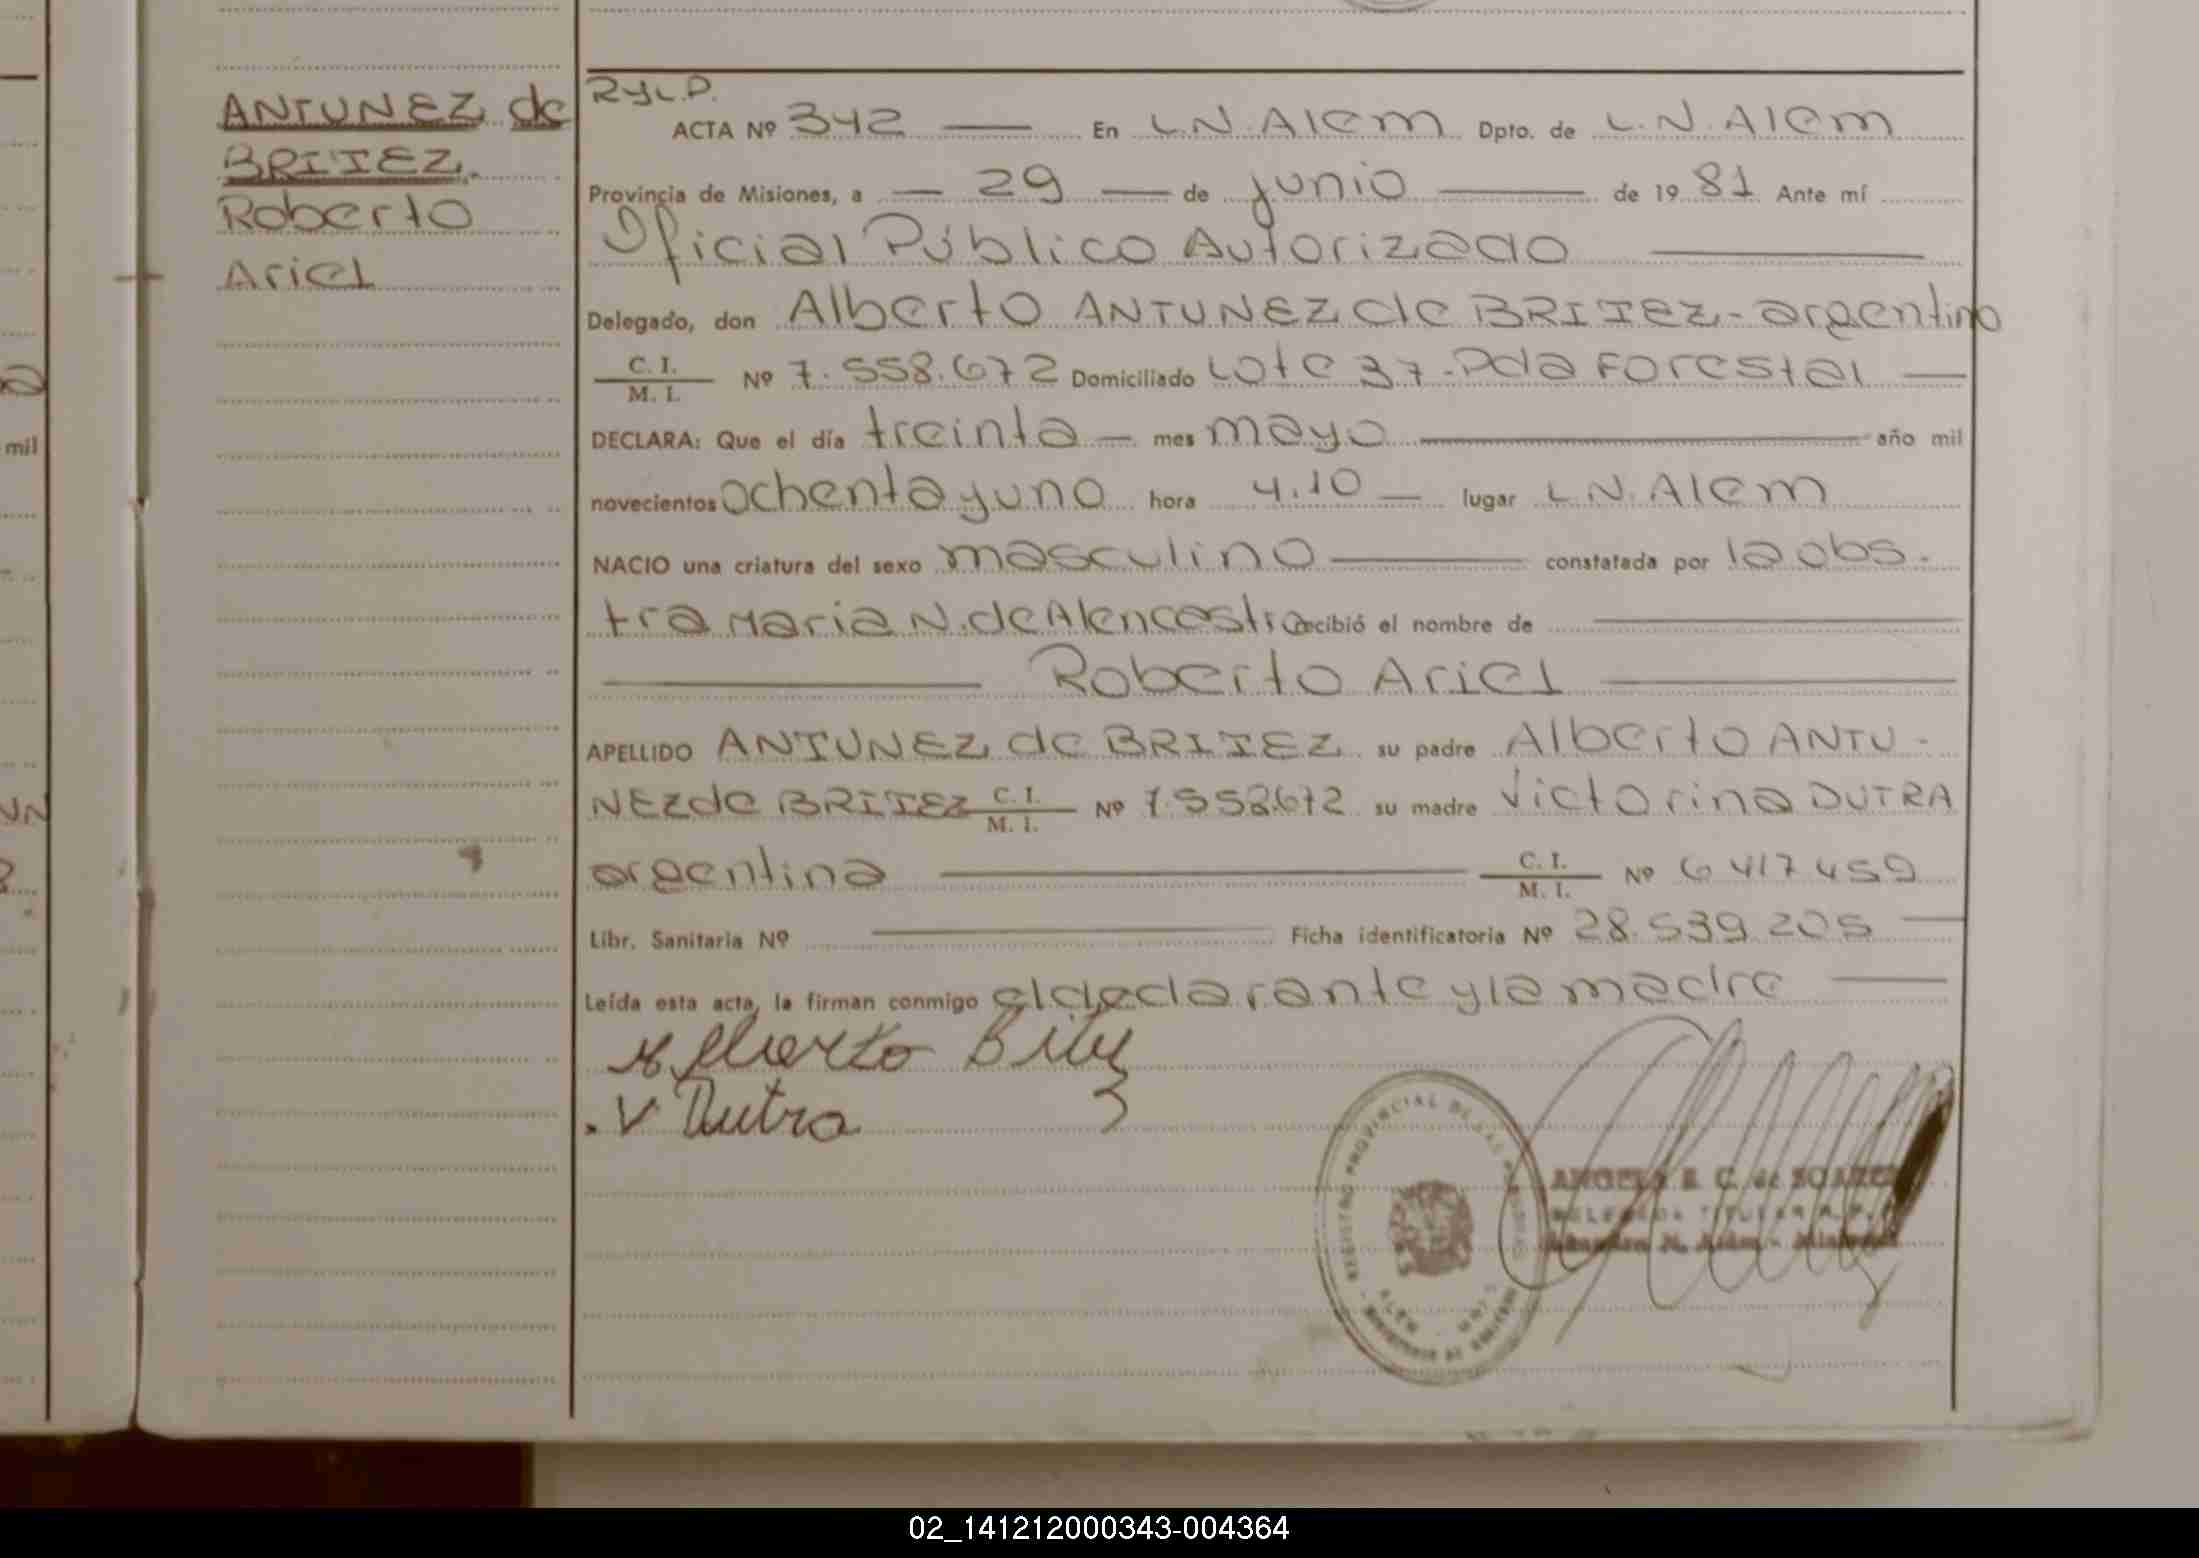 ANTUNEZ de
BRITEZ.
Roberto
Ariel
RyL.P.
ACTA Nº 342 En L.N.Alem Dpto. de L.N.Alem
Provincia de Misiones, a 29 de junio de 1981 Ante mí
Oficial Público Autorizado
Delegado, don Alberto ANTUNEZ de BRITEZ - argentino
C. I.
M. I.
Nº 7.558.672 Domiciliado Lote 37-Pda Forestal
DECLARA: Que el día treinta mes mayo año mil
novecientos ochenta y uno hora 4.10 lugar L.N.Alem
NACIO una criatura del sexo masculino constatada por la obs-
tra Maria N. de Alencastro recibió el nombre de
Roberto Ariel
APELLIDO ANTUNEZ de BRITEZ su padre Alberto ANTU-
NEZ de BRITEZ C. I. M. I. Nº 7.558.672 su madre Victorina DUTRA
argentina C. I. M. I. Nº 6417459
Libr. Sanitaria Nº Ficha identificatoria Nº 28.539.205
Leída esta acta, la firman conmigo el declarante y la madre
Alberto
V Dutra
REGISTRO PROVINCIAL DE LAS PERSONAS
ALEM
ANGELA E. C. de SOAREZ
DELEGADA TITULAR
Leandro N. Alem - Misiones
mil
02_141212000343-004364